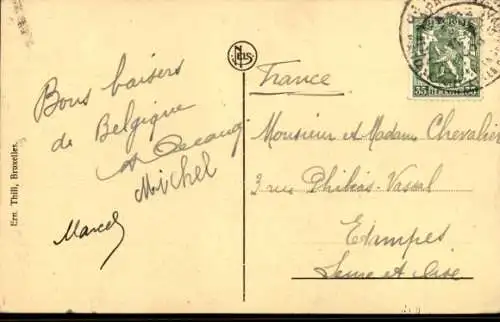 Bons baisers
de Belgique
Michel
Marcel
Ern. Thill, Bruxelles.
NELS
France
Monsieur et Madame Chevalier
3 rue Philias-Vassal
Etampes
Seine et Oise
35 BELGIE